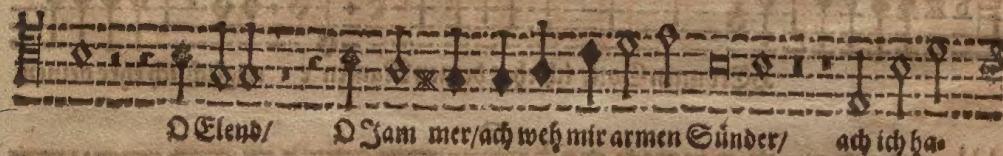 O Elend/ O Jam mer/ach weh mir armen Sünder/ ach ich ha-